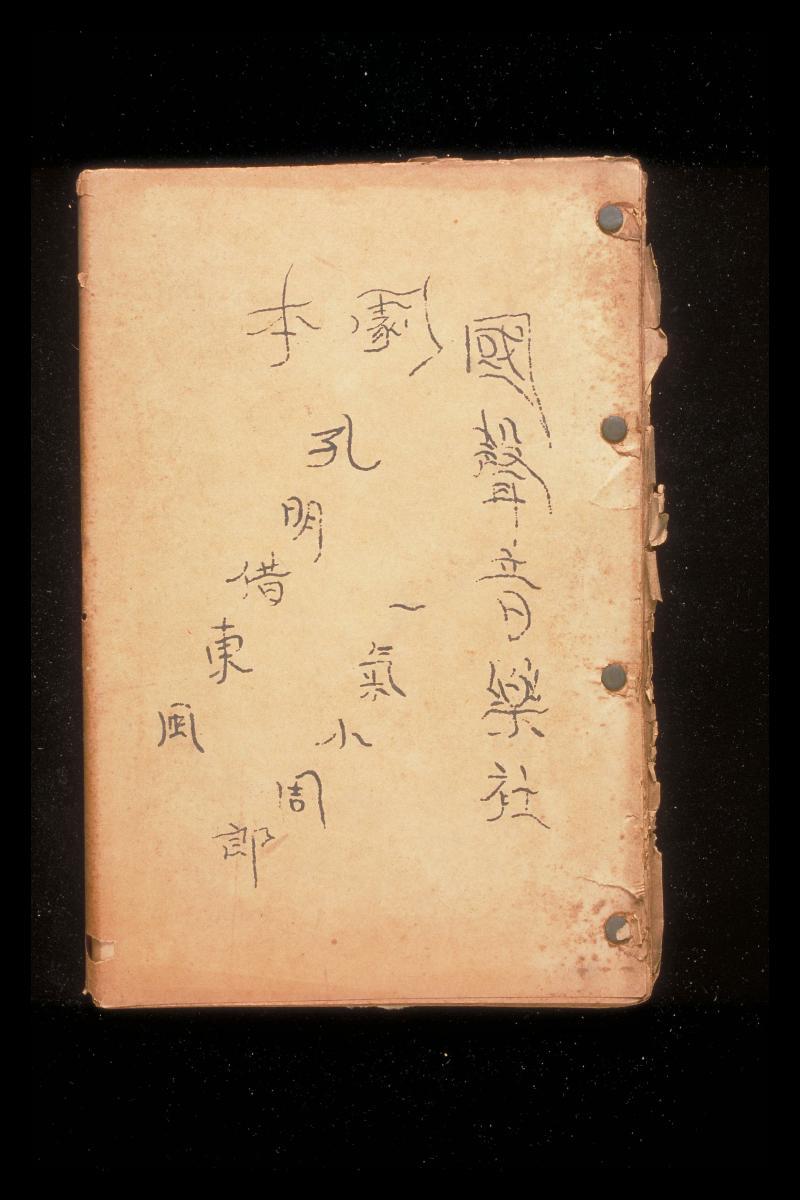 國聲音樂社
劇本
一氣小周郎
孔明借東風